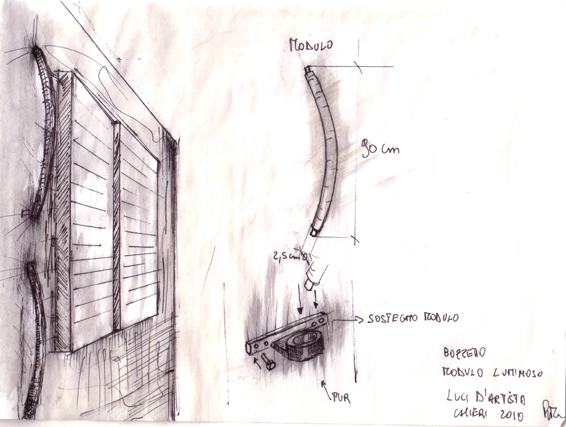 MODULO
90 cm
2,5 cm
SOSTEGNO MODULO
PVR
BOZZETTO
MODULO LUMINOSO
LUCI D'ARTISTA
2010